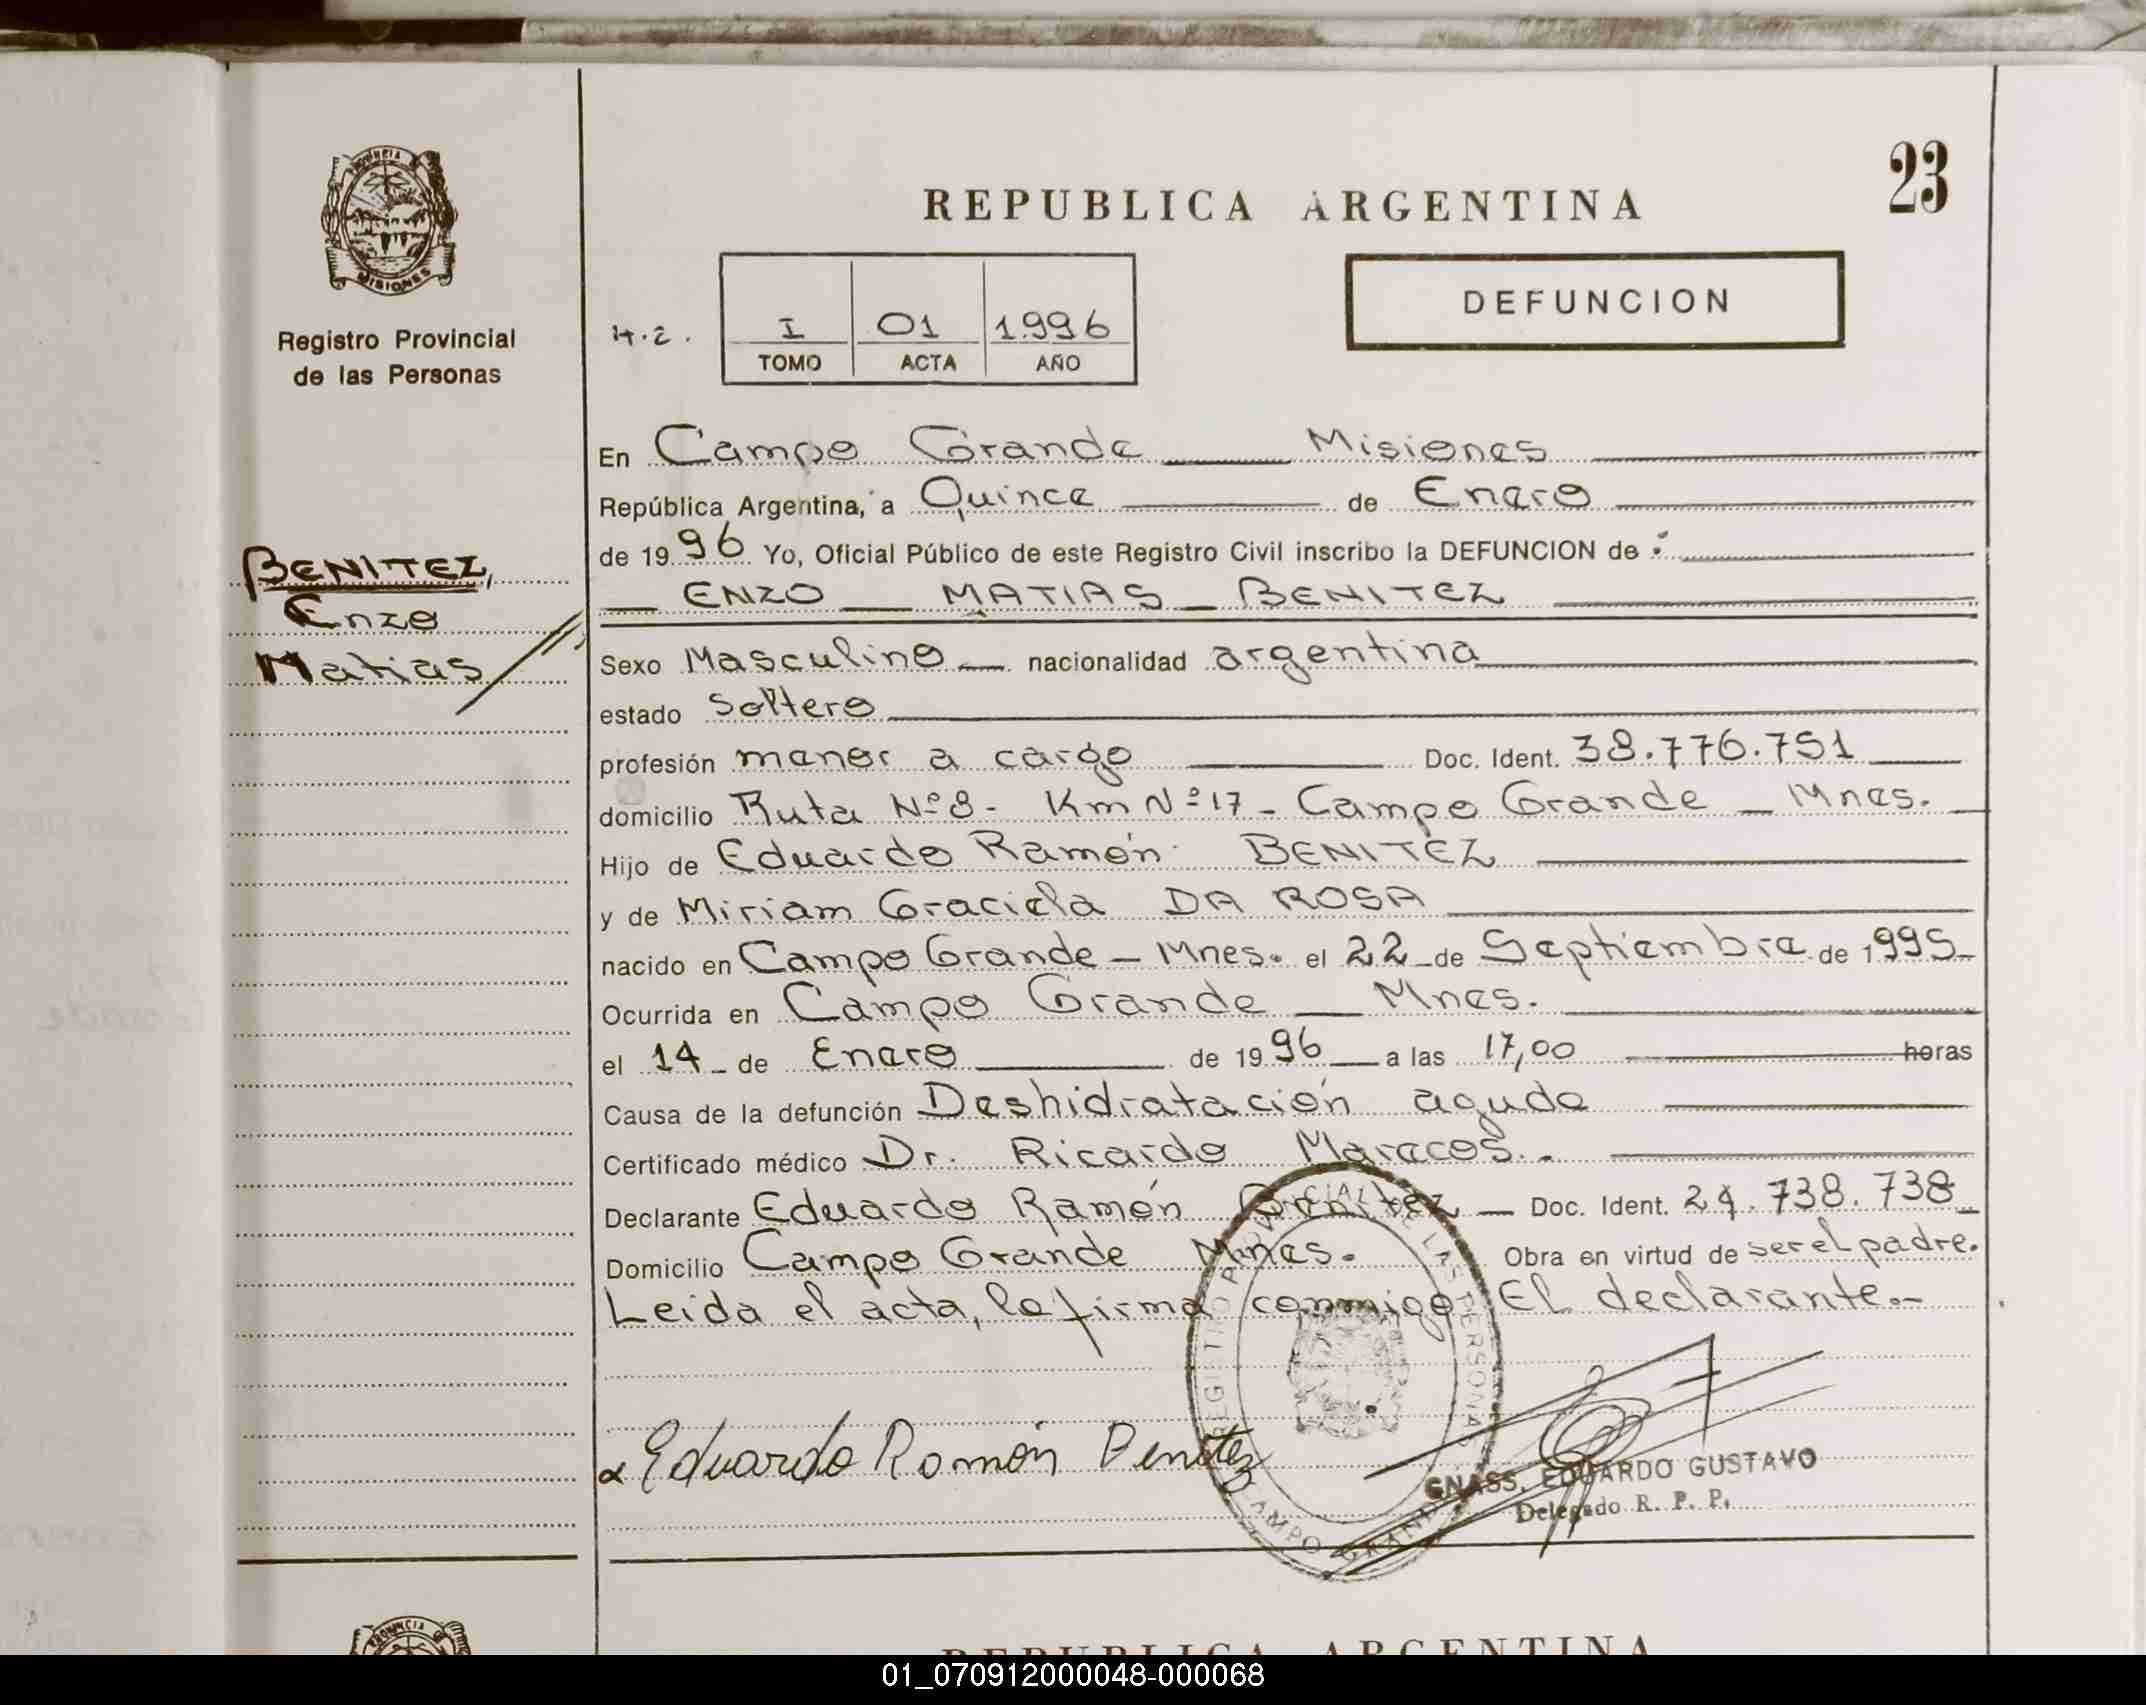 PROVINCIA DE
MISIONES
Registro Provincial
de las Personas
BENITEZ,
Enzo
Matias
23
REPUBLICA ARGENTINA
DEFUNCION
H.2.
I 01 1.996
TOMO ACTA AÑO
En Campo Grande Misiones
República Argentina, a Quince de Enero
de 1996 Yo, Oficial Público de este Registro Civil inscribo la DEFUNCION de :
ENZO MATIAS BENITEZ
Sexo Masculino nacionalidad argentina
estado Soltero
profesión menor a cargo Doc. Ident. 38.776.751
domicilio Ruta Nº8- Km Nº17- Campo Grande - Mnes.
Hijo de Eduardo Ramón BENITEZ
y de Miriam Graciela DA ROSA
nacido en Campo Grande - Mnes. el 22 de Septiembre de 1995
Ocurrida en Campo Grande - Mnes.
el 14 de Enero de 1996 a las 17,00 horas
Causa de la defunción Deshidratación aguda
Certificado médico Dr. Ricardo Maracos.-
Declarante Eduardo Ramón Benitez - Doc. Ident. 24.738.738
Domicilio Campo Grande Mnes. Obra en virtud de ser el padre.
Leida el acta, la firma conmigo El declarante.-
REGISTRO PROVINCIAL DE LAS PERSONAS
CAMPO GRANDE
Eduardo Ramón Benitez
GNASS, EDUARDO GUSTAVO
Delegado R. P. P.
PROVINCIA
REPUBLICA ARGENTINA
01_070912000048-000068